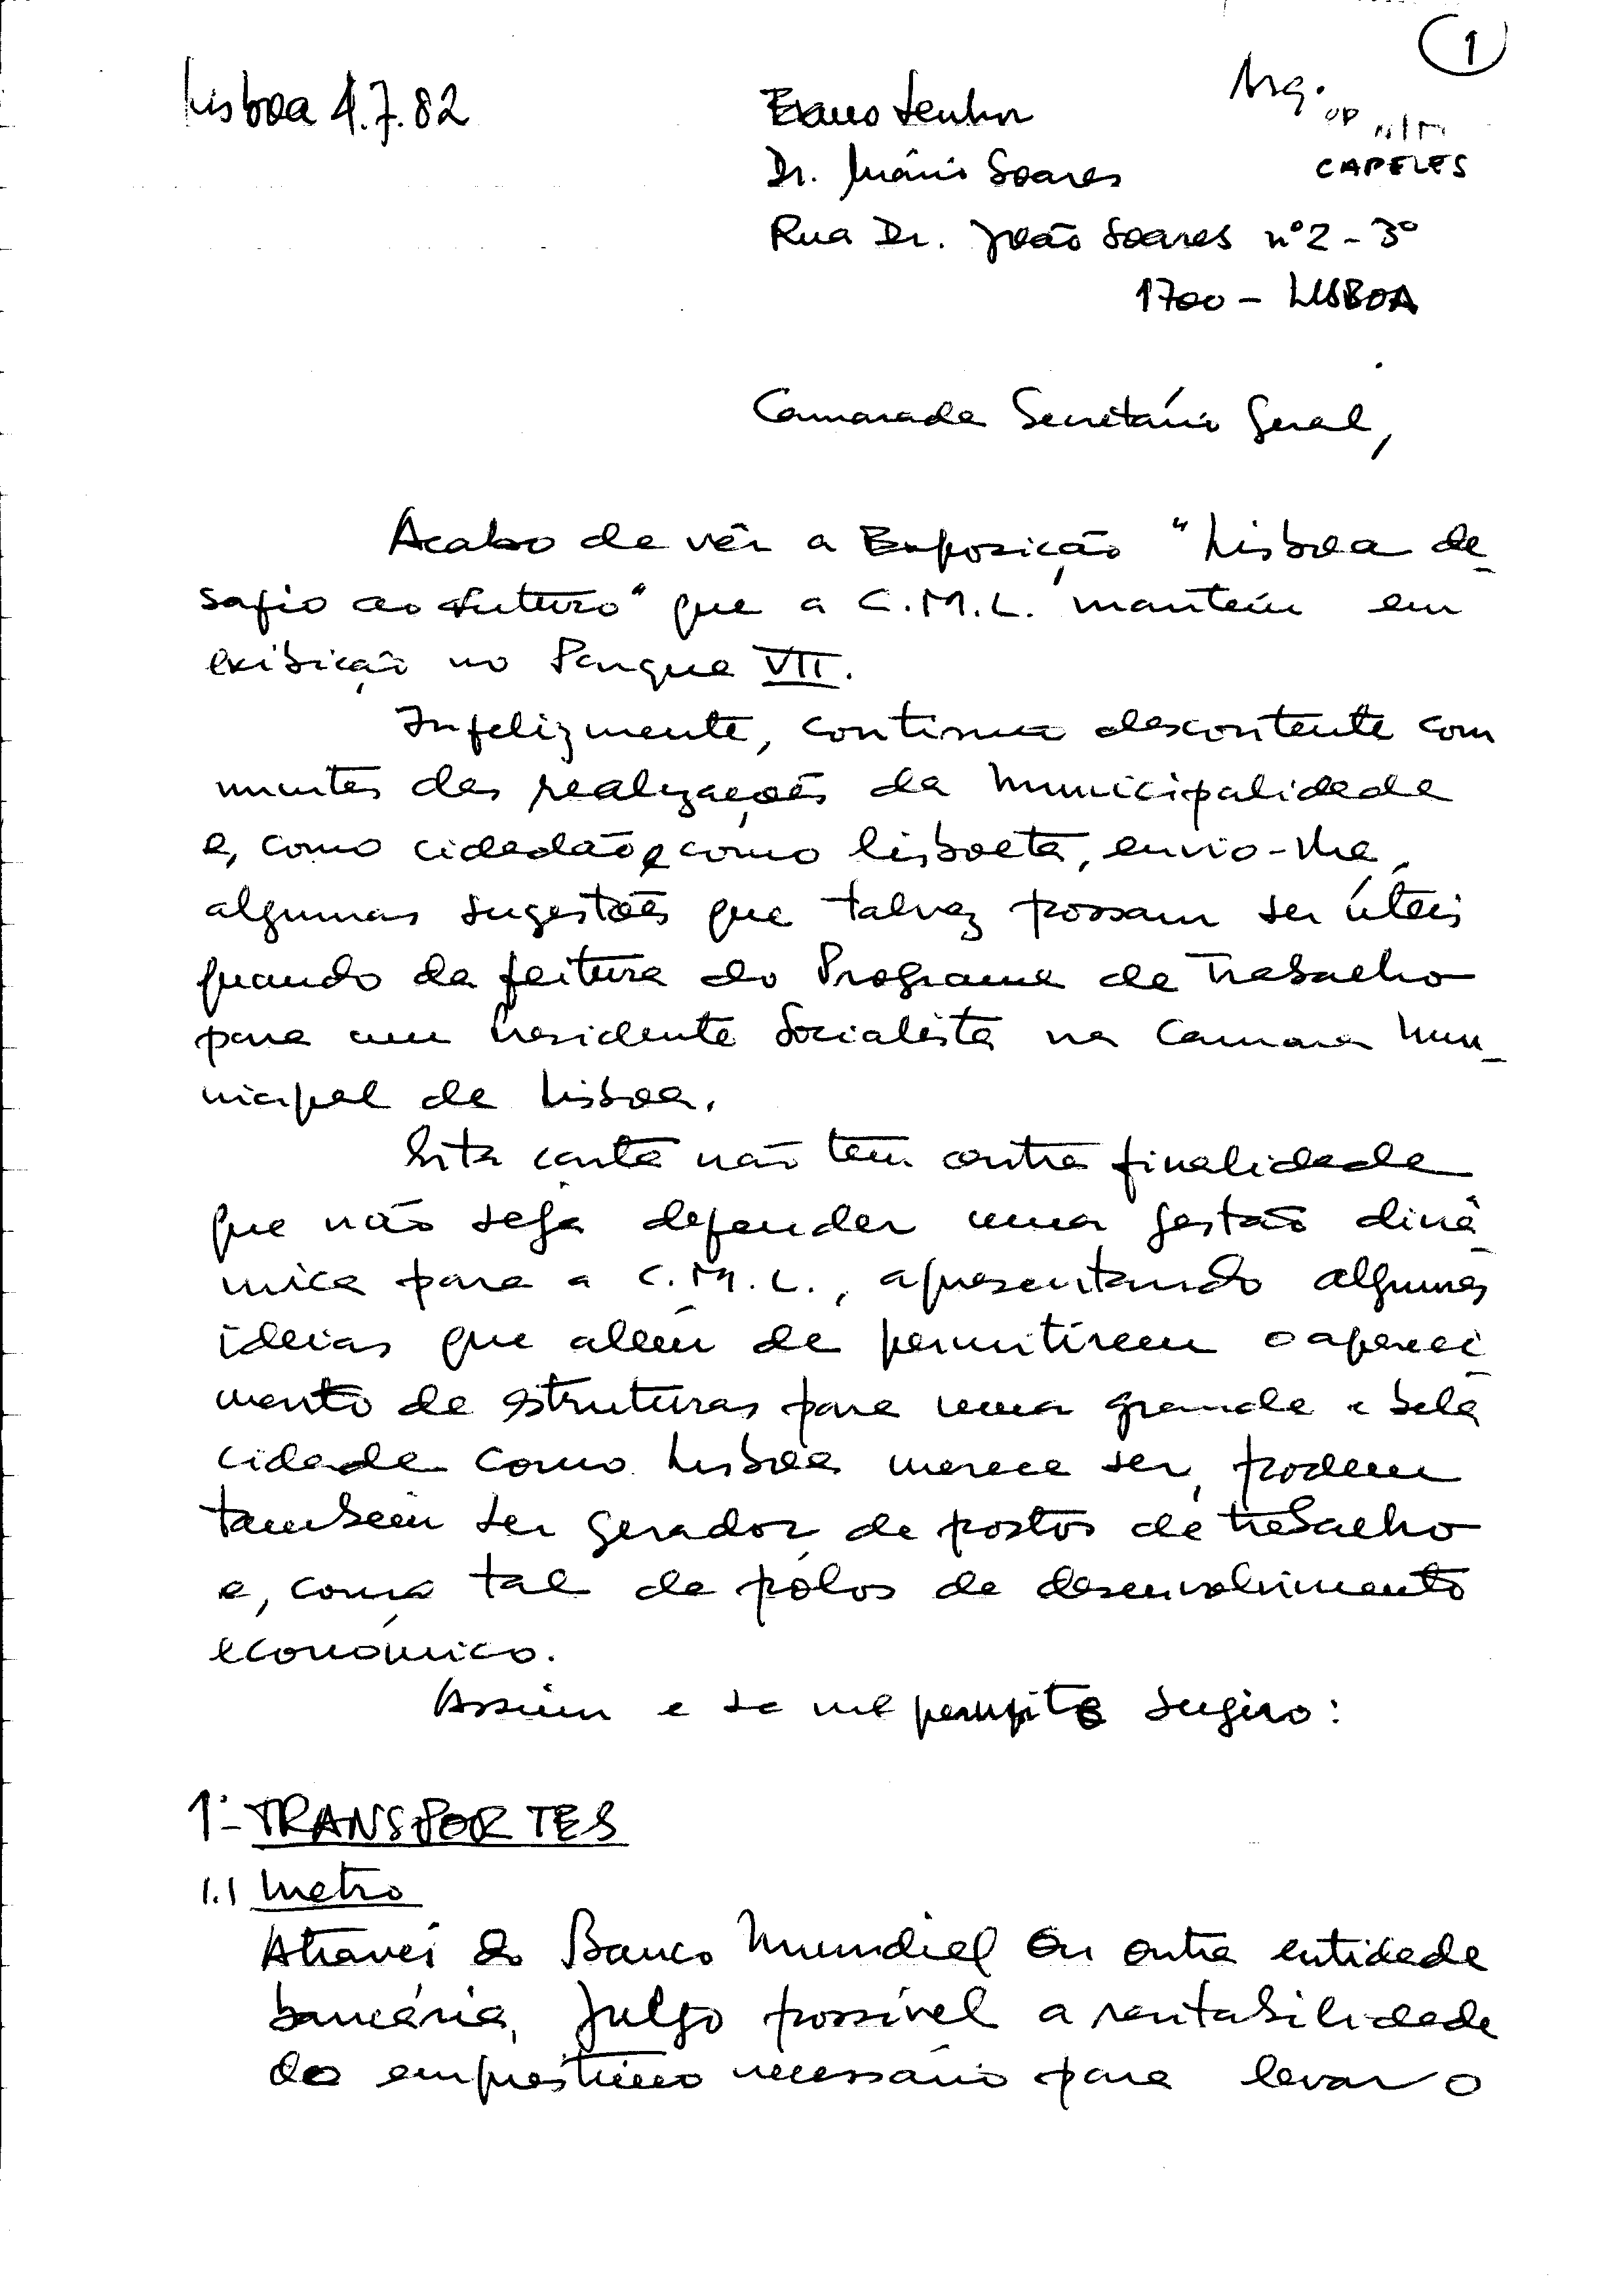 1
Lisboa 1.7.82
Exmo Senhor
Dr. Mário Soares
CAPELES
Rua Dr. João Soares nº 2 - 3º
1700 - LISBOA
Camarada Secretário Geral,
Acabo de vêr a Exposição "Lisboa de-
safio ao futuro" que a C.M.L. mantém em
exibição no Parque VII.
Infelizmente, continuo descontente com
muitas das realizações da Municipalidade
e, como cidadão e como lisboeta, envio-lhe
algumas sugestões que talvez possam ser úteis
quando da feitura do Programa de Trabalho
para um Presidente Socialista na Camara Mu-
nicipal de Lisboa.
Esta carta não tem outra finalidade
que não seja defender uma gestão dinâ-
mica para a C.M.L., apresentando algumas
ideias que além de permitirem o apareci-
mento de estruturas para uma grande e bela
cidade como Lisboa merece ser, podem
também ser gerador de postos de trabalho
e, como tal de pólos de desenvolvimento
económico.
Assim e se me permite sugiro:
1- TRANSPORTES
1.1 Metro
Através do Banco Mundial ou outra entidade
bancária, julgo possível a rentabilidade
do empréstimo necessário para levar o